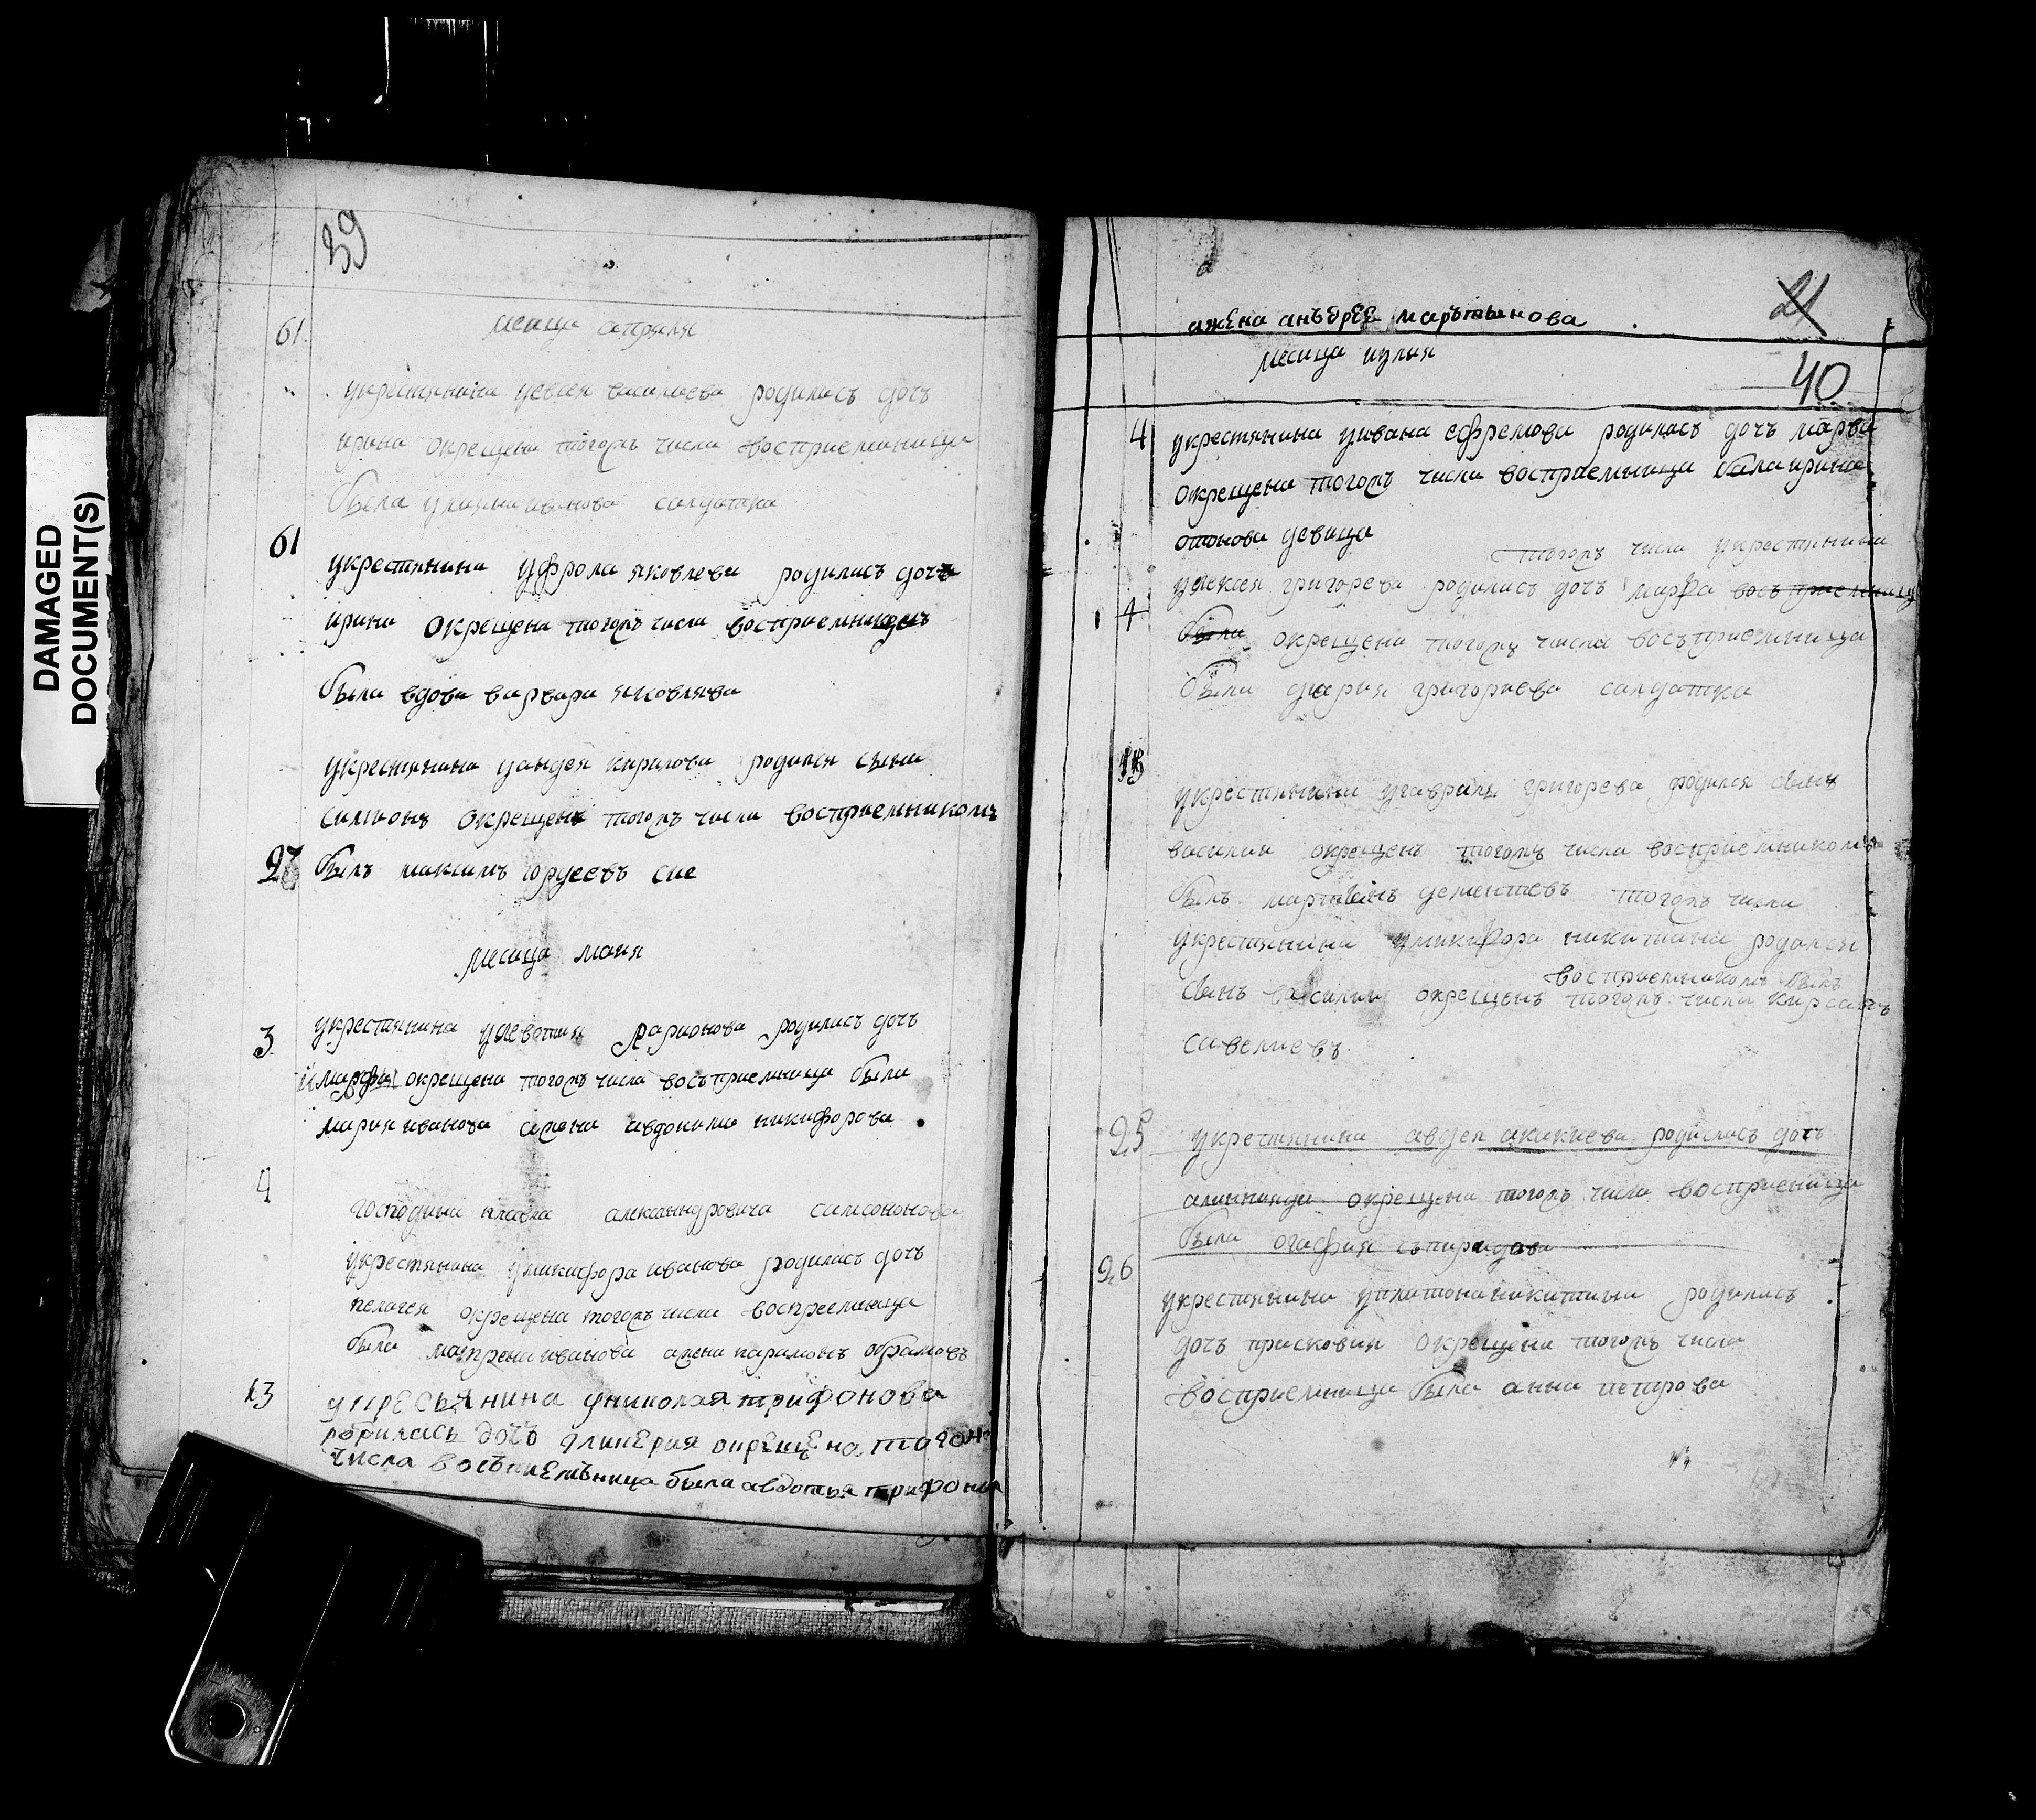 DAMAGED
DOCUMENT(S)
39
месица априля
61
укрестянина уевсея василиева родилась дочь
ирина окрещена тогожъ числа восприемницца
была улияна иванова салдатка
61
укрестянина уфрола яковлева родилась дочъ
ирина окрещена тогожъ числа восприемницею
была вдова варвара яковлява
укрестянина кирилова родился сына
симионъ окрещенъ тогожъ числа восприемникомъ
27 былъ максимъ гордеевъ
месица маия
3 укрестянина ларионова родилась дочъ
марфа окрещена тогожъ числа восъприемница была
мария иванова жена никифорова
4
господина павла александровича самсононова
укрестянина уникифора иванова родилась дочъ
пелагея окрещена тогожъ числа
была матрена иванова жена парамонъ
13 укресьянина униколая трифонова
родилась дочъ гликерия окрещена тогож
числа была авдотья трифон
ажена анъдрее маръты нова
21
месица иулия
40
4 укрестянина уивана ефремова родилась дочъ маръва
окрещена тогожъ числа восприемница была ирина
девица
тогожъ числа укрестянина
4 уалексея григорева родилась дочъ марфа восъприемница
была окрещена тогожъ числа восъприемница
была дария григориева салдатка
13
укрестянина угаврилы григорева родился сынъ
василии окрещенъ тогожъ числа восприемникомъ
былъ мартынъ дементиевъ тогожъ числа
укрестянина уникифора никитина родился
восприемникомъ былъ
сынъ василии окрещенъ тогожъ числа кирсанъ
савелиевъ
25 укрестянина авдея акакиева родилась дочъ
окрещена тогожъ числа
была огафия съпиридова
26
укрестянина уплатона никитина родилась
дочъ прасковия окрещена тогожъ числа
восприемница была анна петрова